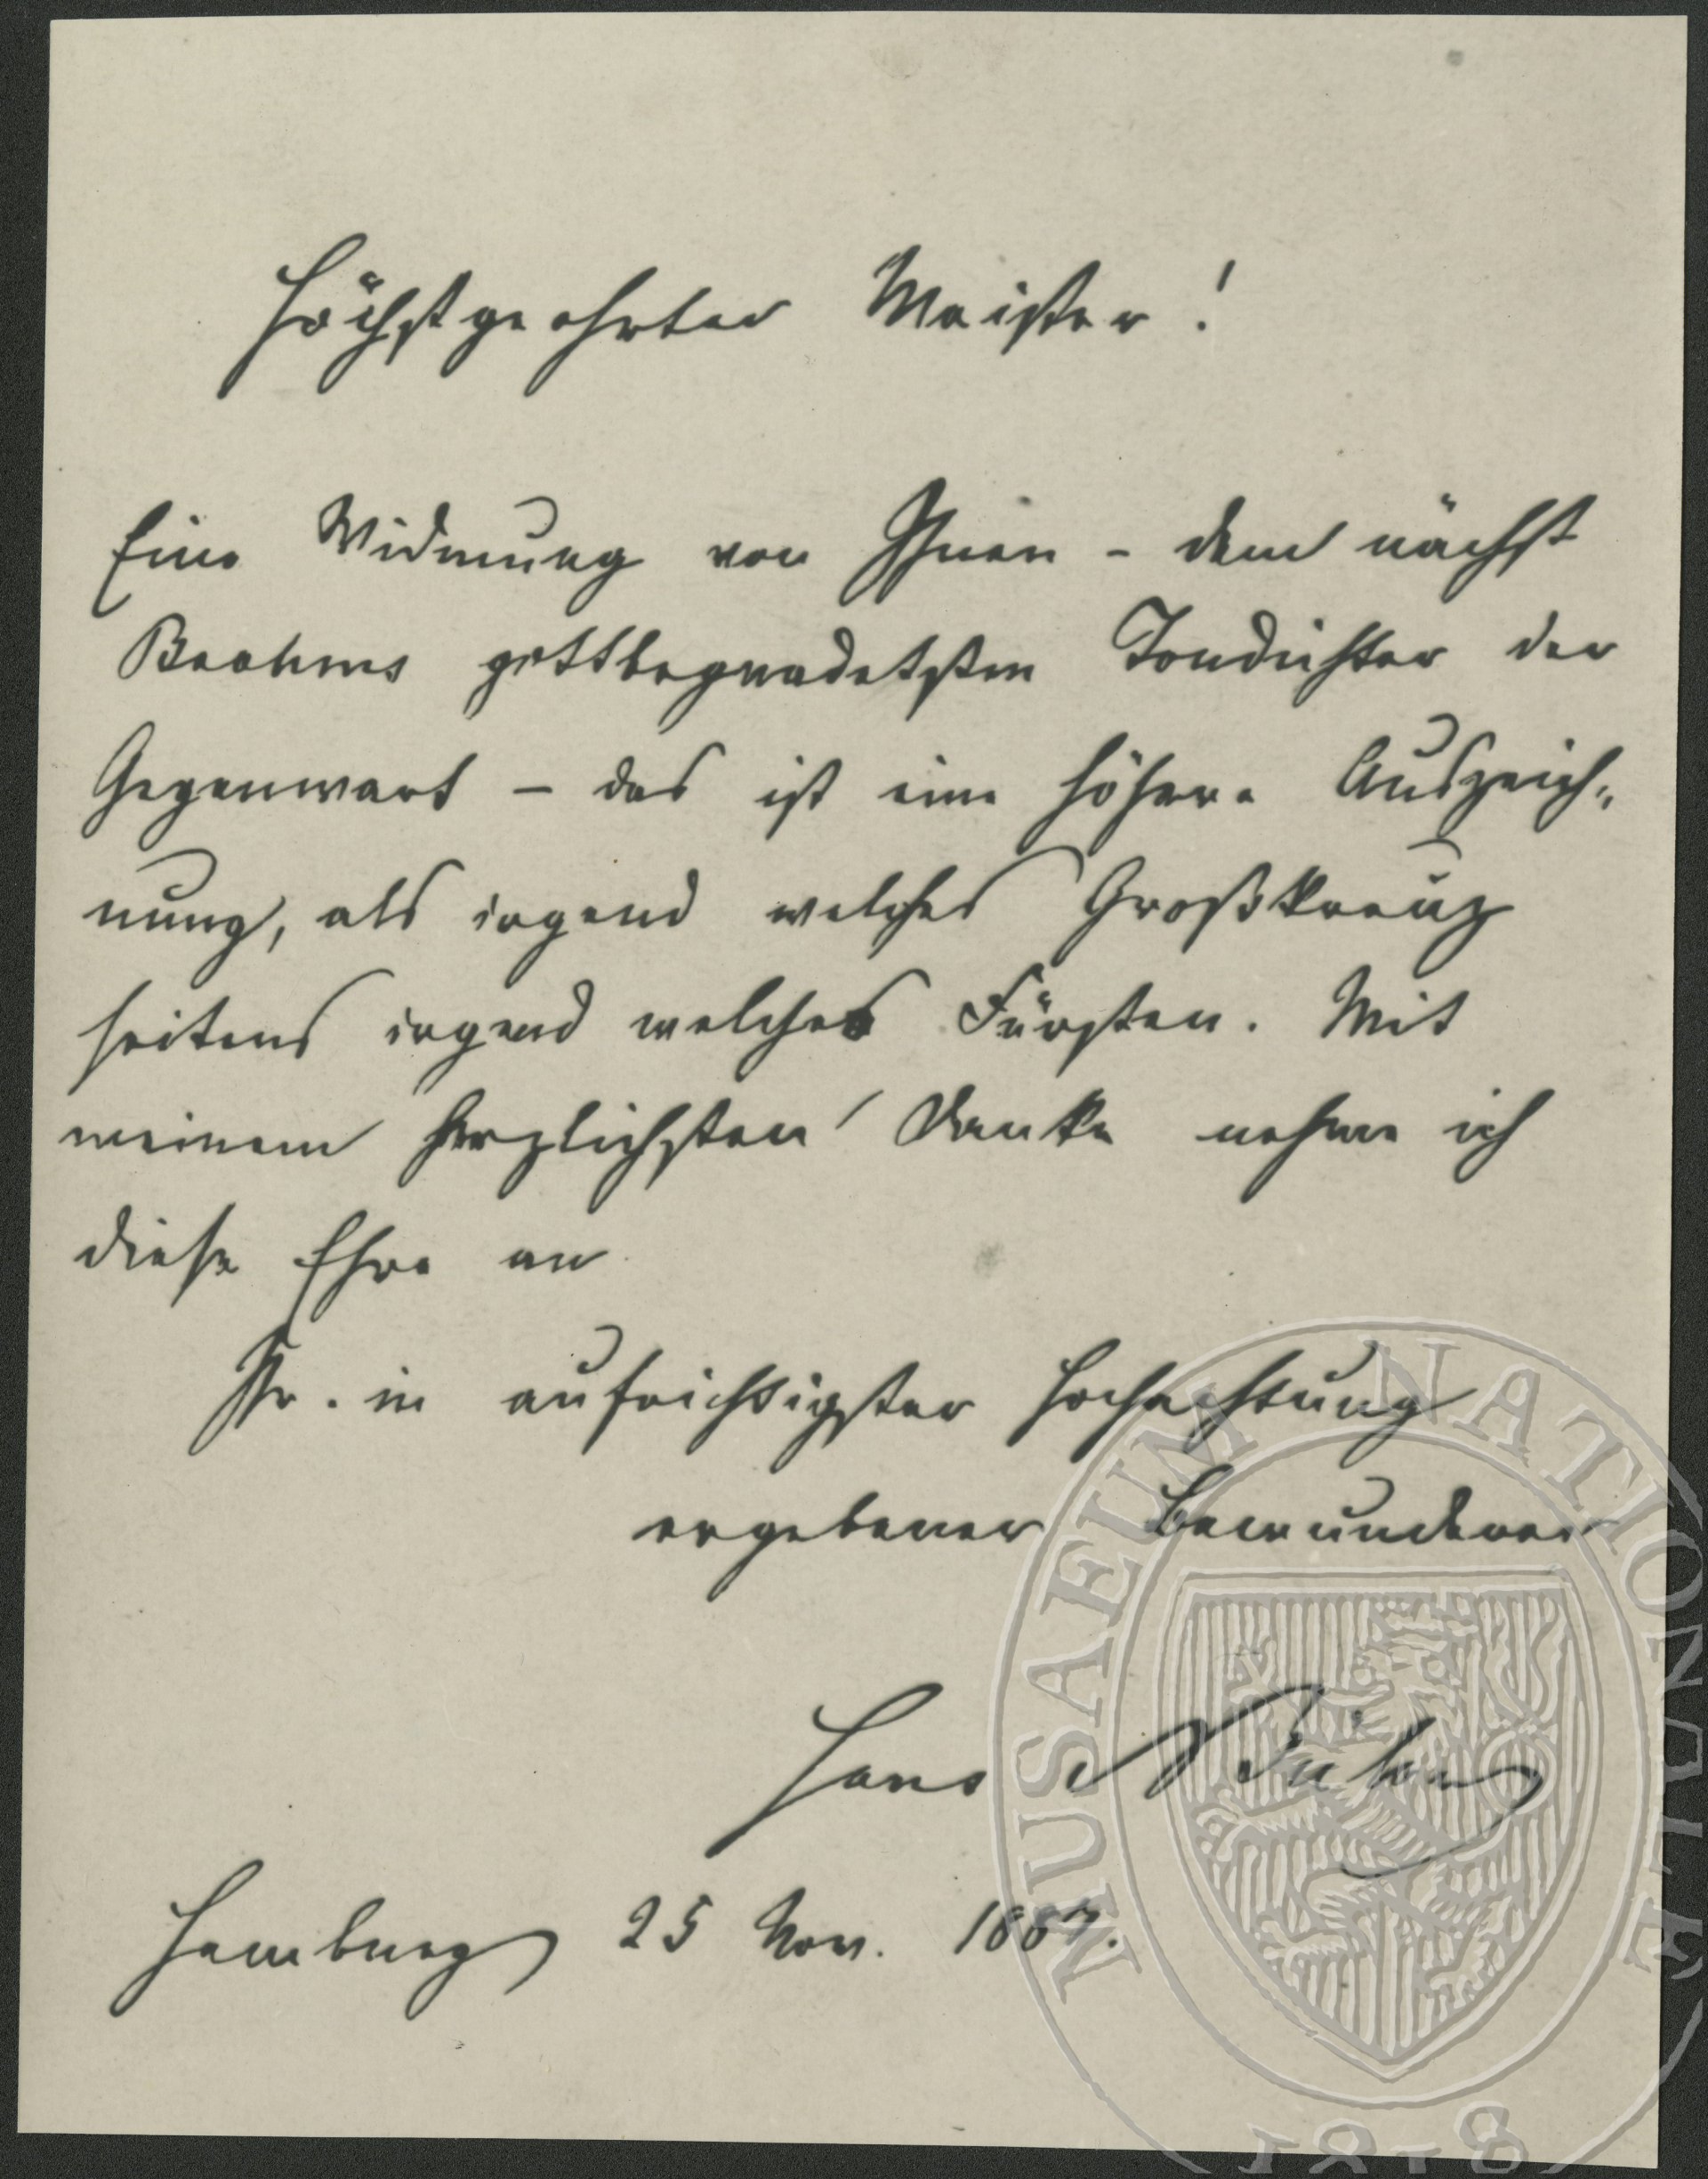 Höchstgeehrter Meister!
Eine Widmung von Ihnen – dem nächst
Brahms gottbegnadetsten Tondichter der
Gegenwart – das ist eine höhere Auszeich-
nung, als irgend welches Großkreuz
seitens irgend welches Fürsten. Mit
meinem herzlichsten Danke nehme ich
diese Ehre an
Ihr. in aufrichtigster Hochachtung
ergebener Bewunderer
Hans v Bülow
Hamburg 25 Nov. 1887.
MUSAEUM NATIONALE
1818